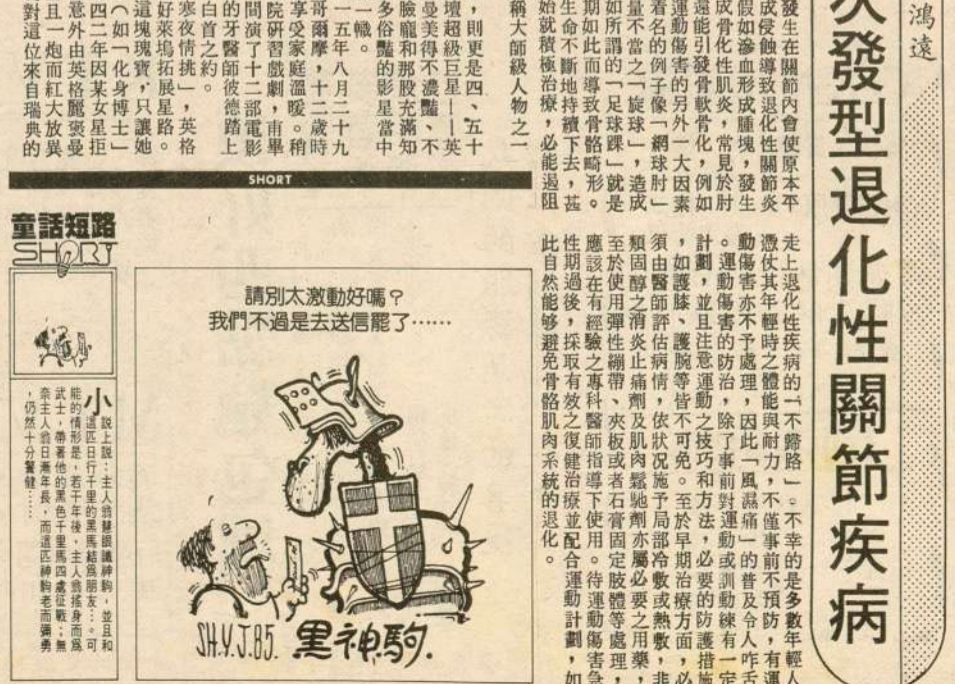 鴻遠
次發型退化性關節疾病
發生在關節內會使原本平
成侵蝕導致退化性關節炎
假如滲血形成腫塊,發生
成骨化性肌炎,常見於肘
還能引發骨軟骨化,例如
運動傷害的另外一大因素
着名的例子像「網球肘」
量不當之「旋球」,造成
如所謂的「足球踝」就是
期如此而導致骨骼畸形。
生命不斷地持續下去,甚
始就積極治療,必能遏阻
走上退化性疾病的「不歸路」。不幸的是多數年輕人
憑仗其年輕時之體能與耐力,不僅事前不預防,有運
動傷害亦不予處理,因此「風濕痛」的普及令人咋舌
。運動傷害的防治,除了事前對運動或訓練有一定
計劃,並且注意運動之技巧和方法,必要的防護措施
,如護膝、護腕等皆不可免。至於早期治療方面,必
須由醫師評估病情,依狀況施予局部冷敷或熱敷,非
類固醇之消炎止痛劑及肌肉鬆馳劑亦屬必要之用藥,
至於使用彈性繃帶、夾板或者石膏固定肢體等處理,
應該在有經驗之專科醫師指導下使用。待運動傷害急
性期過後,採取有效之復健治療並配合運動計劃,如
此自然能够避免骨骼肌肉系統的退化。
稱大師級人物之一
,則更是四、五十
壇超級巨星——英
曼美得不濃豔、不
臉龐和那股充滿知
多俗豔的影星當中
一幟。
一五年八月二十九
哥爾摩,十二歲時
享受家庭溫暖。稍
院研習戲劇,甫畢
間演了十二部電影
的牙醫師彼德踏上
白首之約。
寒夜情挑」,英格
好萊塢拓展星路。
這塊瑰寶,只讓她
(如「化身博士」
四二年因某女星拒
意外由英格麗褒曼
且一炮而紅大放異
對這位來自瑞典的
SHORT
童話短路
SHORT
請別太激動好嗎?
我們不過是去送信罷了……
SH.Y.J.85.
黑神駒.
小說上說:主人翁慧眼識神駒,並且和
這匹日行千里的黑馬結爲朋友…。可
能的情形是,若干年後,主人翁搖身而爲
武士,帶著他的黑色千里馬四處征戰;無
奈主人翁日漸年長,而這匹神駒老而彌勇
,仍然十分警健……